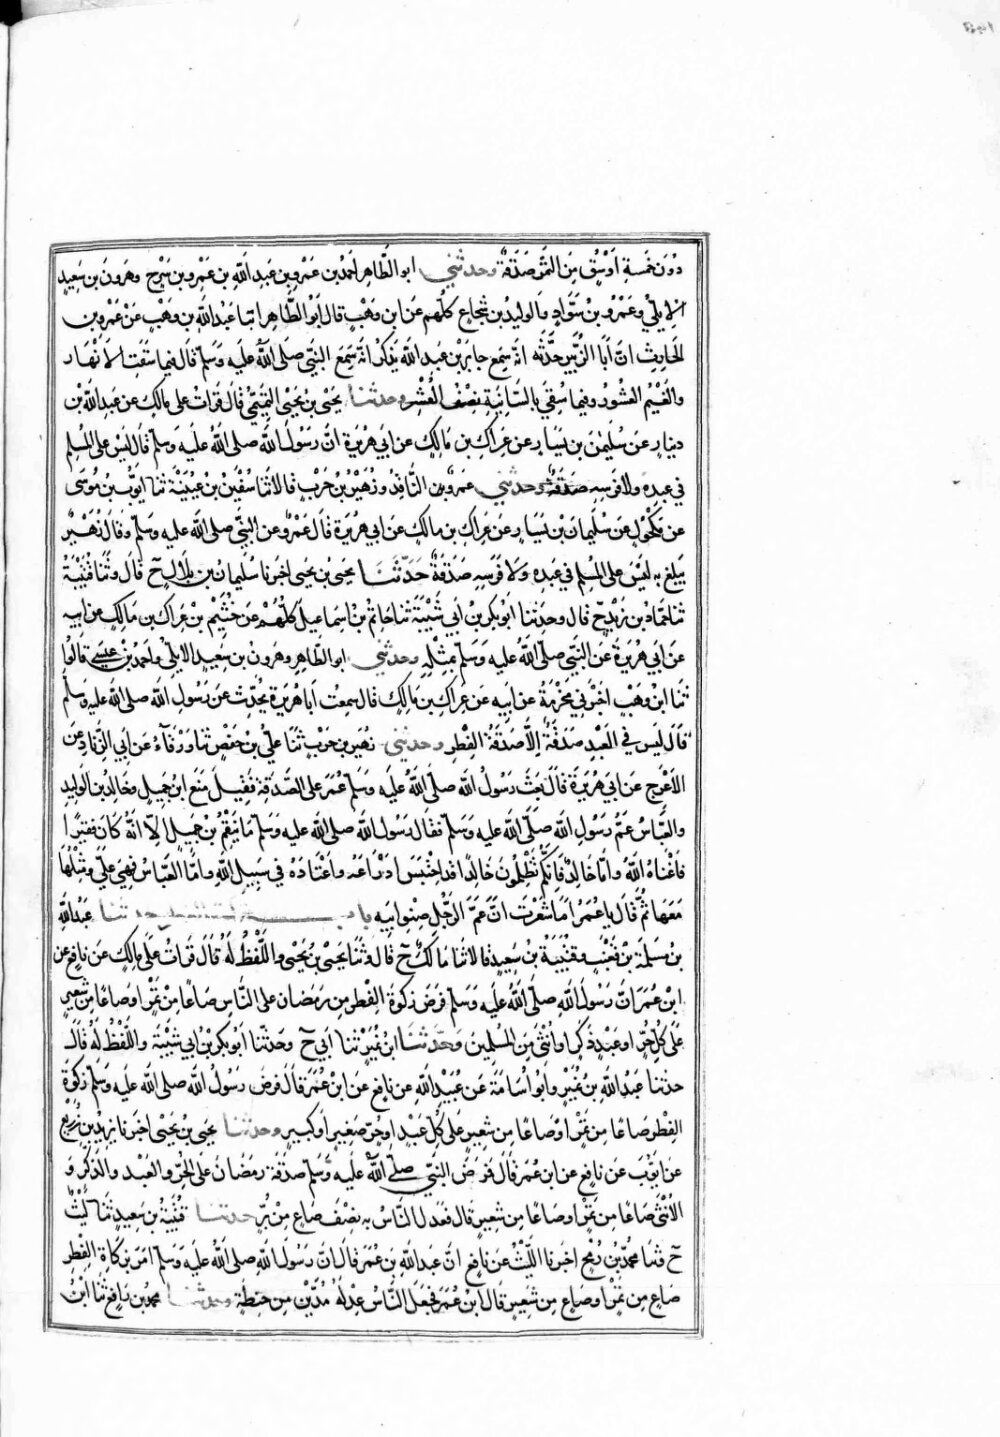 دُونَ خَمسةِ اَوْسُقٍ مِنَ التمَرِ صَدَقَةٌ وحدثني ابو الطَّاهِرِ احمدُ بن عَمْرِو بن عبدِ اللهِ بن عَمْرِو بن سَرْحٍ وهَرونُ بن سَعِيدٍ
الايلِيُّ وعَمْرُو بْن سَوَّادٍ والوليدُ بن شجاعٍ كلّهم عَن ابنِ وَهْبٍ قال اَبُو الطَّاهِرِ انبا عَبدُ اللهِ بن وَهْبٍ عَنْ عَمْرِو بن
الحَارِثِ انّ اَبَا الزُّبَيْرِ حَدَّثه انهَ سمِعَ جابرَ بْن عبدِ الله يَذكرُ انهَ سَمِعَ النبيّ صَلى اللهُ عَليه وَسَلم قَال فيما سَقَتِ الاَنْهَار
والغَيْمُ العُشُورُ وفيما سُقِيَ بِالسَّانِيَةِ نِصْفُ العُشْرِ وحدثنا يحيَى بن يَحْيَى التَّمِيْمِيُّ قَالَ قَرَاتُ على مالكٍ عن عَبدِ اللهِ بْنِ
دينارٍ عَن سُلَيْمٰنَ بن يَسَارٍ عن عِرَاكِ بن مَالكٍ عن ابي هُرَيرَةَ انَّ رَسُولَ اللهِ صلى اللهُ عَليه وَسَلم قَالَ لَيسَ على المُسْلِمِ
في عبدِهِ ولا فَرسِهِ صَدَقَةٌ وحدثني عمرٌو بن النَّاقِدُ وزُهَيْرُ بْن حَربٍ قَالا ثنا سُفْيٰنُ بْن عُيَيْنَةَ ثنا ايّوبُ بْن مُوسَى
عن مَكْحُولٍ عن سُلَيمانَ بن يَسَارٍ عن عَراكِ بن مالكٍ عن ابي هريرَةَ قالَ عَمْرٌو عن النبيّ صلى الله عليه وسلّم وقالَ زُهَيْرٌ
يبلغ به لَيْسَ على المُسْلِمِ في عبدِهِ ولا فَرَسِهِ صَدَقَةٌ حَدّثَنَا يحيى بن يَحْيَى اخبرنا سُليمانُ بن بِلالٍ ح قالَ وثَنَا قُتَيْبَةُ
ثنا حمّادُ بن زَيْدٍ ح قال وحَدثنا ابوبكرِ بْن اَبي شَيْبَةَ ثنا حَاتِمُ بْن اسماعيلَ كُلّهُمْ عن خُثَيْمِ بْن عِراكِ بن مَالكٍ عن ابيهِ
عَن اَبي هُرَيْرَةَ عَن النَّبيّ صَلى اللهُ عليه وَسَلم بِمِثْلِهِ وحدثني ابو الطّاهِرِ وهَرونُ بن سَعِيدٍ الايليُّ واَحمدُ بْن عيسى قالُوا
ثَنَا ابنُ وَهْبٍ اخبَرني مَخْرَمَةُ عن ابيهِ عَن عِراكِ بن مالكٍ قال سمِعتُ اَبا هُريرَةَ يُحدِّثُ عَن رَسُولِ اللهِ صلى الله عليه وَسَلم
قَالَ لَيسَ في العَبْدِ صَدَقَةٌ اِلَّا صَدَقَةُ الفِطْرِ وحدثني زهَيرُ بن حَرْبٍ ثَنا علِيُّ بْن حَفْصٍ ثنا وَرْقاءُ عَن اَبي الزّنَادِ عَن
الاَعْرَجِ عَن اَبي هُرَيْرَةَ قَالَ بَعَثَ رَسُولُ اللهِ صَلى اللهُ عَليه وَسَلم عُمَرَ على الصَّدَقَةِ فَقِيلَ مَنَعَ ابنُ جَميلٍ وخَالدُ بن الوَليدِ
والعَبَّاسُ عَمّ رَسُولِ اللهِ صَلى اللهُ عَليه وَسَلم فقال رَسُولُ اللهِ صلى الله عليه وَسَلم مَا يَنقِمُ بْن جَميلٍ اِلّا انّهُ كَانَ فَقيرًا
فَاَغْنَاهُ اللهُ واَمّا خَالدٌ فَانكُمْ تَظْلِمُونَ خَالدًا قدِ احْتَبَسَ اَدْرَاعَهُ وَاَعْتَادَهُ في سَبيلِ اللهِ واَمَّا العَبَّاسُ فهِيَ علَيَّ ومِثْلُهَا
مَعَهَا ثمَّ قَالَ يا عُمَرُ امَا شَعَرْتَ اَنّ عَمَّ الرَّجُلِ صِنْوُ ابيهِ باب زكوة الفطر حدثنا عَبدُ اللهِ
بن مَسلَمَةَ بْن قَعْنَبٍ وقُتَيْبَةُ بْن سَعِيدٍ قَالا ثنا مَالكٌ ح قالَ وثَنَا يَحْيَى بْنُ يَحْيَى واللَّفْظُ لَهُ قَالَ قَرَاتُ علَى مَالِكٍ عَن نَافِعٍ عن
ابنِ عُمَرَ انَّ رَسُولَ اللهِ صَلى اللهُ عَليه وَسَلم فَرَضَ زكوةَ الفِطْرِ مِن رَمَضانَ على النَّاسِ صَاعًا مِنْ تَمْرٍ اوصَاعًا مِن شَعيرٍ
عَلَى كلّ حُرٍّ او عَبْدٍ ذَكَرٍ او اُنْثَى مِنَ المُسْلِمينَ وَحَدّثَنَا ابنُ نُمَيْرٍ ثنا اَبي ح وحَدثنا ابُوبكرِ بنُ ابي شَيْبَةَ واللَّفظُ لهُ قَالَ
حدثنا عَبدُ اللهِ بنُ نُميْرٍ وابُو اُسَامَةَ عَنْ عُبَيدِ اللهِ عن نَافِعٍ عَن ابْنِ عُمَرَ قَالَ فرضَ رَسُولُ اللهِ صلى اللهُ عليه وَسَلم زكوةَ
الفِطْرِ صَاعًا مِن تَمْرٍ او صَاعًا مِن شَعِيرٍ عَلى كُلّ عَبْدٍ او حُرٍّ صَغيرٍ اوكَبيرٍ وحدثنا يحيَى بْن يَحْيَى اخبَرنا يَزِيدُ بْن زُرَيْعٍ
عَن ايّوبَ عَن نَافِعٍ عن ابن عُمَرَ قَالَ فَرَضَ النبيّ صلى اللهُ عَليه وَسَلم صَدَقَةَ رمَضَانَ علَى الحُرّ والعَبْدِ والذّكَرِ وَ
الاُنْثَى صَاعًا مِن تَمْرٍ او صَاعًا مِن شَعِيرٍ قَال فعَدلَ النَّاسُ بِهِ نِصْفَ صَاعٍ مِنْ بُرٍّ حدثنا قتَيْبَةُ بن سَعِيدٍ ثنا لَيْثٌ
ح وثنا محمّدُ بْن رُمْحٍ اخبرنا اللّيْثُ عَن نَافِعٍ انّ عبدَ اللهِ بن عُمَرَ قَالَ اِنَّ رَسُولَ اللهِ صلى اللهُ عَليه وَسَلم اَمَرَ بزَكاةِ الفِطْرِ
صَاعٍ مِن تَمْرٍ او صَاعٍ مِن شَعيرٍ قالَ ابنُ عُمَرَ فجَعَلَ النَّاسُ عِدْلَهُ مُدَّيْنِ مِن حِنطةٍ وحدثنا محمدُ بن رَافِعٍ ثنا ابنُ